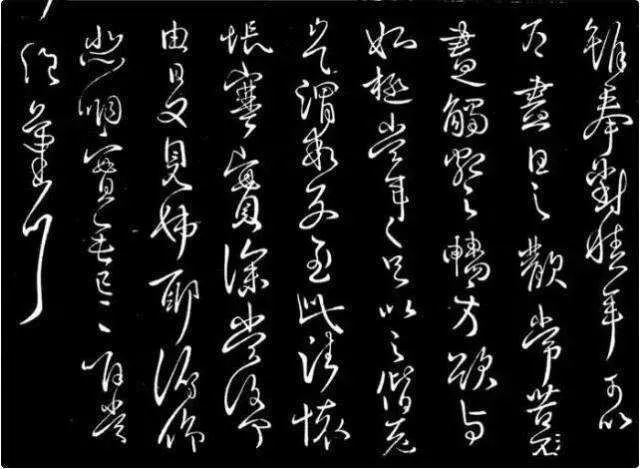 雖奉對積年可以
為盡日之歡常苦不
盡觸額之暢方欲與
姊極當年之疋以之偕老
豈謂乖別至此諸懷
悵塞實深當復何
由日夕見姊耶俯仰
悲咽實無已已惟當
絕氣耳